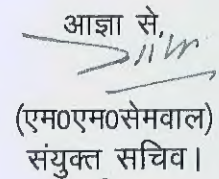 आज्ञा से,
(एम0एम0सेमवाल)
संयुक्त सचिव।